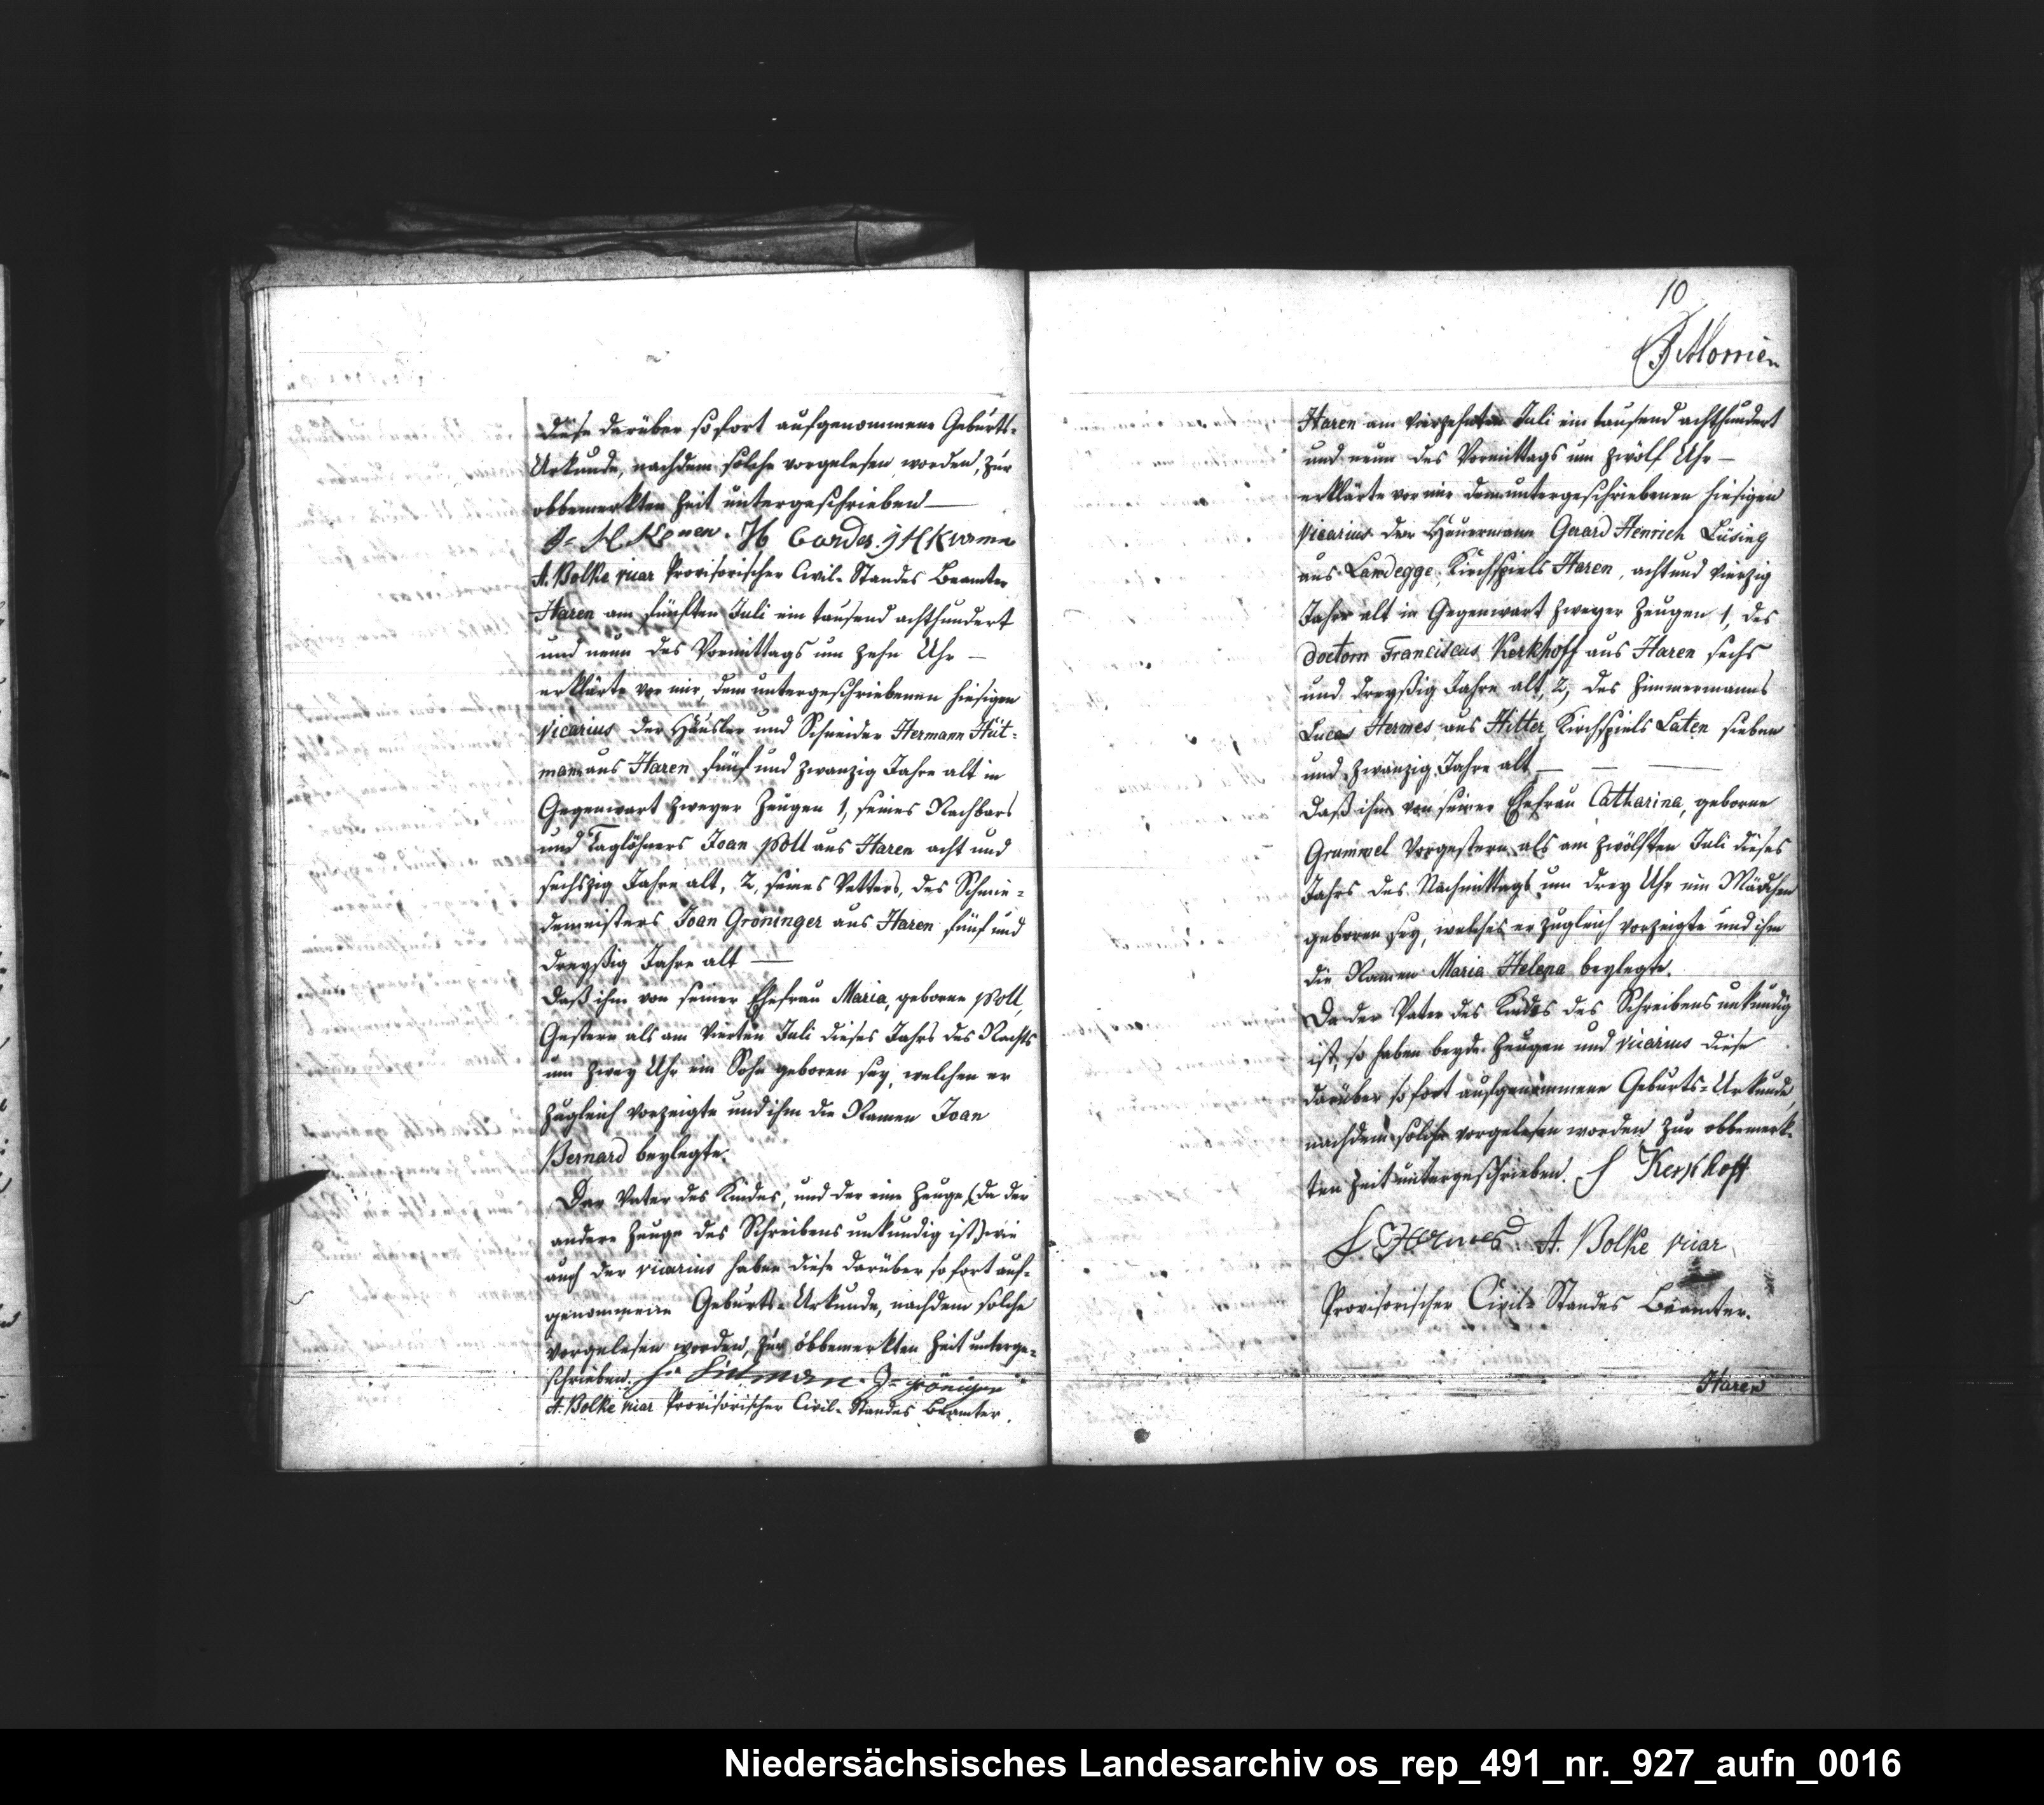 diese darüber sofort aufgenommene Geburts-
Urkunde, nachdem solche vorgelesen worden, zur
obbemerkten Zeit untergeschrieben —
H Cordes. J H Kramer
A. Bolke vicar Provisorischer Civil-Standes Beamter
Haren am fünften Juli ein tausend achthundert
und neun des Vormittags um zehn Uhr —
erklärte vor mir, dem untergeschriebenen hiesigen
Vicarius der Häusler und Schneider Hermann Hüt-
man aus Haren fünf und zwanzig Jahre alt in
Gegenwart zweyer Zeugen 1, seines Nachbars
und Taglöhners Joan Poll aus Haren acht und
sechszig Jahre alt, 2, seines Vetters, des Schmie-
demeisters Joan Gröninger aus Haren fünf und
dreyßig Jahre alt —
daß ihm von seiner Ehefrau Maria, geborne Poll,
Gestern als am vierten Juli dieses Jahrs des Nachts
um zwey Uhr ein Sohn geboren sey, welchen er
zugleich vorzeigte und ihm die Namen Joan
Bernard beylegte.
Der Vater des Kindes, und der eine Zeuge (da der
andere Zeuge des Schreibens unkundig ist) wie
auch der vicarius haben diese darüber sofort auf-
genommene Geburts-Urkunde, nachdem solche
vorgelesen worden, zur obbemerkten Zeit unterge-
schrieben.
A. Bolke vicar Provisorischer Civil-Standes Beamter.
10
Haren am vierzehnten Juli ein tausend achthundert
und neun des Vormittags um zwölf Uhr —
erklärte vor mir dem untergeschriebenen hiesigen
Vicarius der Heuermann Gerard Henrich Lüsing
aus Landegge, Kirchspiels Haren, acht und vierzig
Jahre alt in Gegenwart zweyer Zeugen 1, des
Doctorn Franciscus Kerkhoff aus Haren sechs
und dreyßig Jahre alt, 2, des Zimmermanns
Lucas Hermes aus Hitter, Kirchspiels Laten sieben
und zwanzig Jahre alt — — —
daß ihm von seiner Ehefrau Catharina, geborne
Grummel vorgestern als am zwölften Juli dieses
Jahrs des Nachmittags um drey Uhr ein Mädchen
geboren sey, welches er zugleich vorzeigte und ihm
die Namen Maria Helena beylegte.
Da der Vater des Kindes des Schreibens unkundig
ist, so haben beyde Zeugen und vicarius diese
darüber sofort aufgenommene Geburts-Urkunde,
nachdem solche vorgelesen worden zur obbemerk-
ten Zeit untergeschrieben. F Kerkhoff
L Hermes. A. Bolke vicar
Provisorischer Civil-Standes Beamter.
Haren
Niedersächsisches Landesarchiv os_rep_491_nr._927_aufn_0016